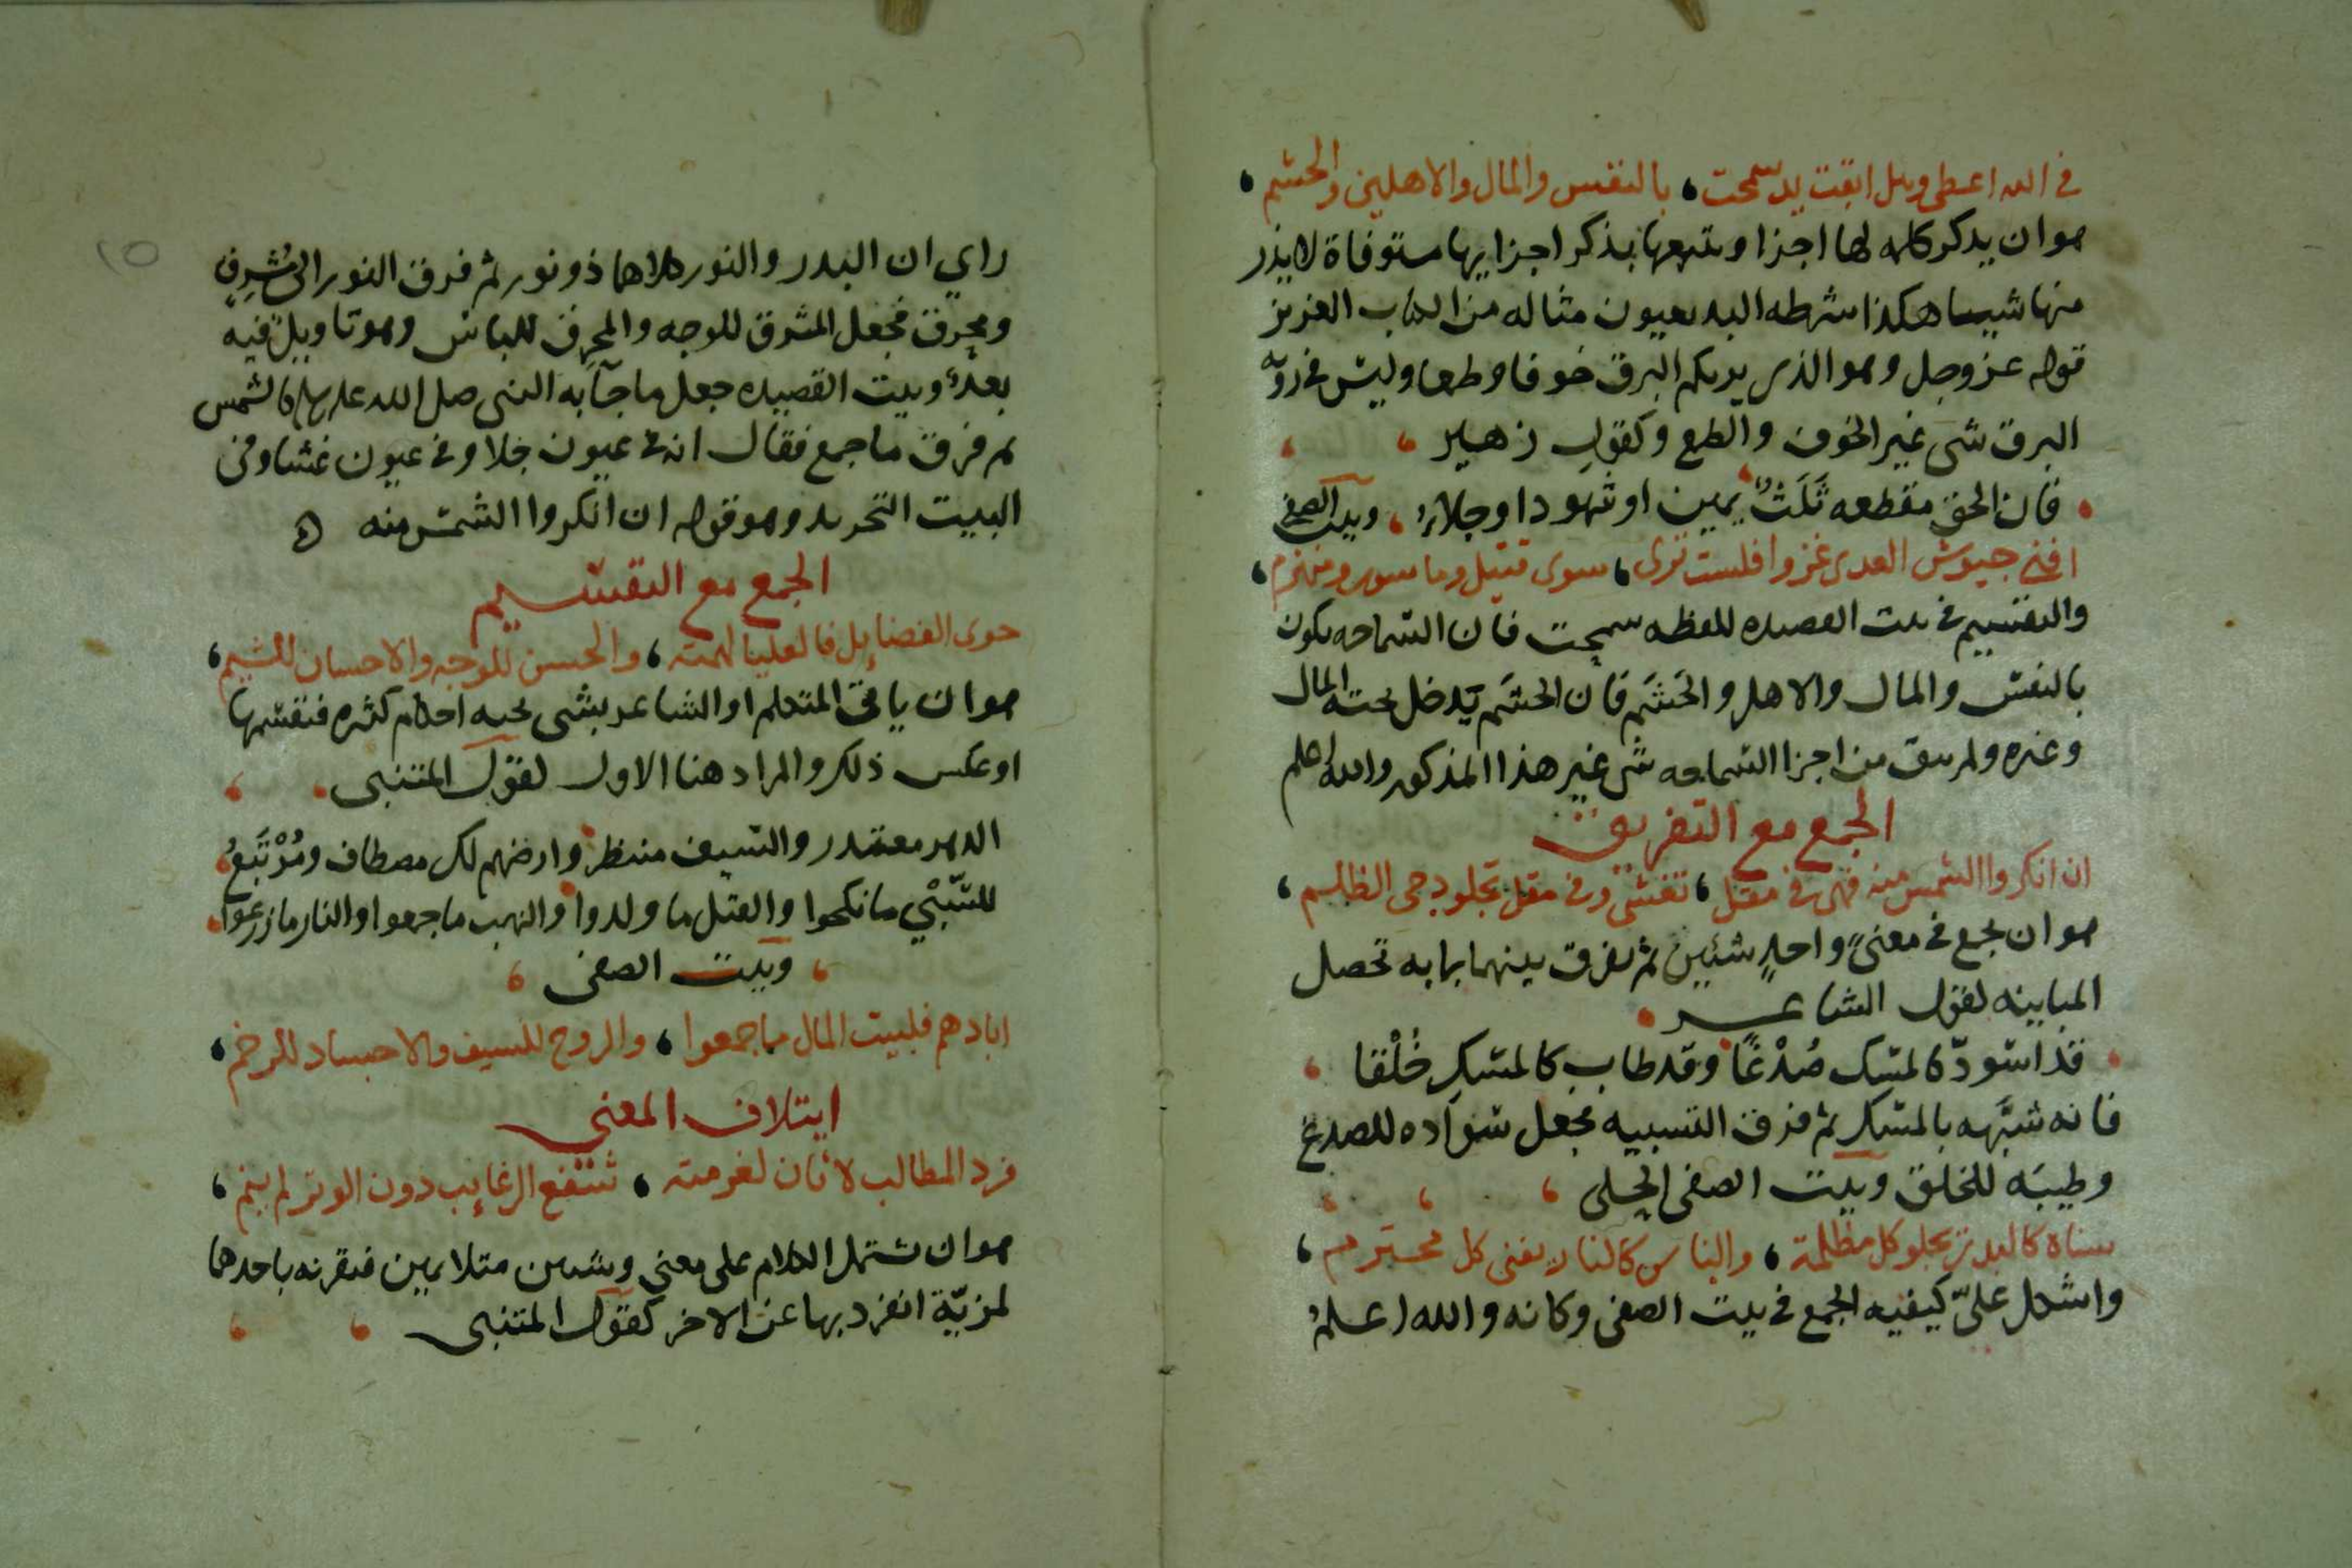 في الله اعطى وهل ابقت يد سمحت، بالنفس والمال والاهلين والحشم،
هوان يذكر كلمه لها اجزا ويتبعها بذكر اجزايها مستوفاة لا يذر
منها شييا هكذا شرطه البديعيون مثاله من الكتاب العزيز
قوله عز وجل وهو الذي يريكم البرق خوفا وطمعا وليس في روية
البرق شي غير الخوف والطمع وكقول زهير
فان الحق مقطعه ثَلَثٌ يمين او شهود او جلاءُ، وبيت الصفي
افنى جيوش العدى غزوا فلست ترى، سوى قتيل وماسور ومنهزم،
والتقسيم في بيت القصيده للفظه سمحت فان السماحه يكون
بالنفس والمال والاهل والحَشَم فان الحشَم يدخل تحته المال
وغيره ولم يبق من اجزا السماحه شي غير هذا المذكور والله اعلم
الجمع مع التفريق
ان انكروا الشمس منه فهي في مقل، تغشى وفي مقل تجلو دجى الظلم،
هو ان يجمع في معنىً واحدٍ شئين ثم يفرق بينهما بما به تحصل
المباينه كقول الشاعر
قد اسودّ كالمسك صُدْغًا وقد طاب كالمسك خُلْقا
فانه شبَّهه بالمسك ثم فرق التشبيه فجعل سَوَاده للصدغ
وطيبَه للخلق وبيت الصفي الحلى
سناه كالبدر يجلو كل مظلمة، والباس كالنار يفنى كل محترم،
واشكل عليّ كيفيه الجمع في بيت الصفي وكانه والله اعلمُ
راي ان البدر والنور كلاهما ذو نور ثم فرق النور الى مُشرِقٍ
ومحرِقٍ فجعل المشرق للوجه والمحرق للباس وهو تاويل فيه
بعدٌ وبيت القصيده جعل ما جآ به النبي صلى الله عليه وسلم كالشمس
ثم فرق ما جمع فقال انه في عيون جلا وفي عيون غشا وفي
البيت التجريد وهو قوله ان انكروا الشمس منه ه
الجمع مع التقسيم
حوى الفضايل فالعليا لهمته، والحسن للوجه والاحسان للشيم،
هو ان ياتى المتكلم او الشاعر بشى تحته احكام كثره فتقسمها
او عكس ذلك والمراد هنا الاول كقول المتنبى
الدهر معتذر والسيف منتظر وارضهم لك مصطاف ومُرْتَبَعُ
للسَّبْيِ ما نكحوا والقتل ما ولدوا والنهب ما جمعوا والنار ما زرعوا
وبيت الصفى
ابادهم فلبيت المال ما جمعوا، والروح للسيف والاجساد للرخم،
ايتلاف المعنى
فرد المطالب لا ثان لغرمته، شفع الرغايب دون الوتر لم ينم،
هو ان يشتمل الكلام على معنى وشيين متلايمين فيقرنه باحدهما
لمزيّة انفرد بها عن الاخر كقول المتنبى